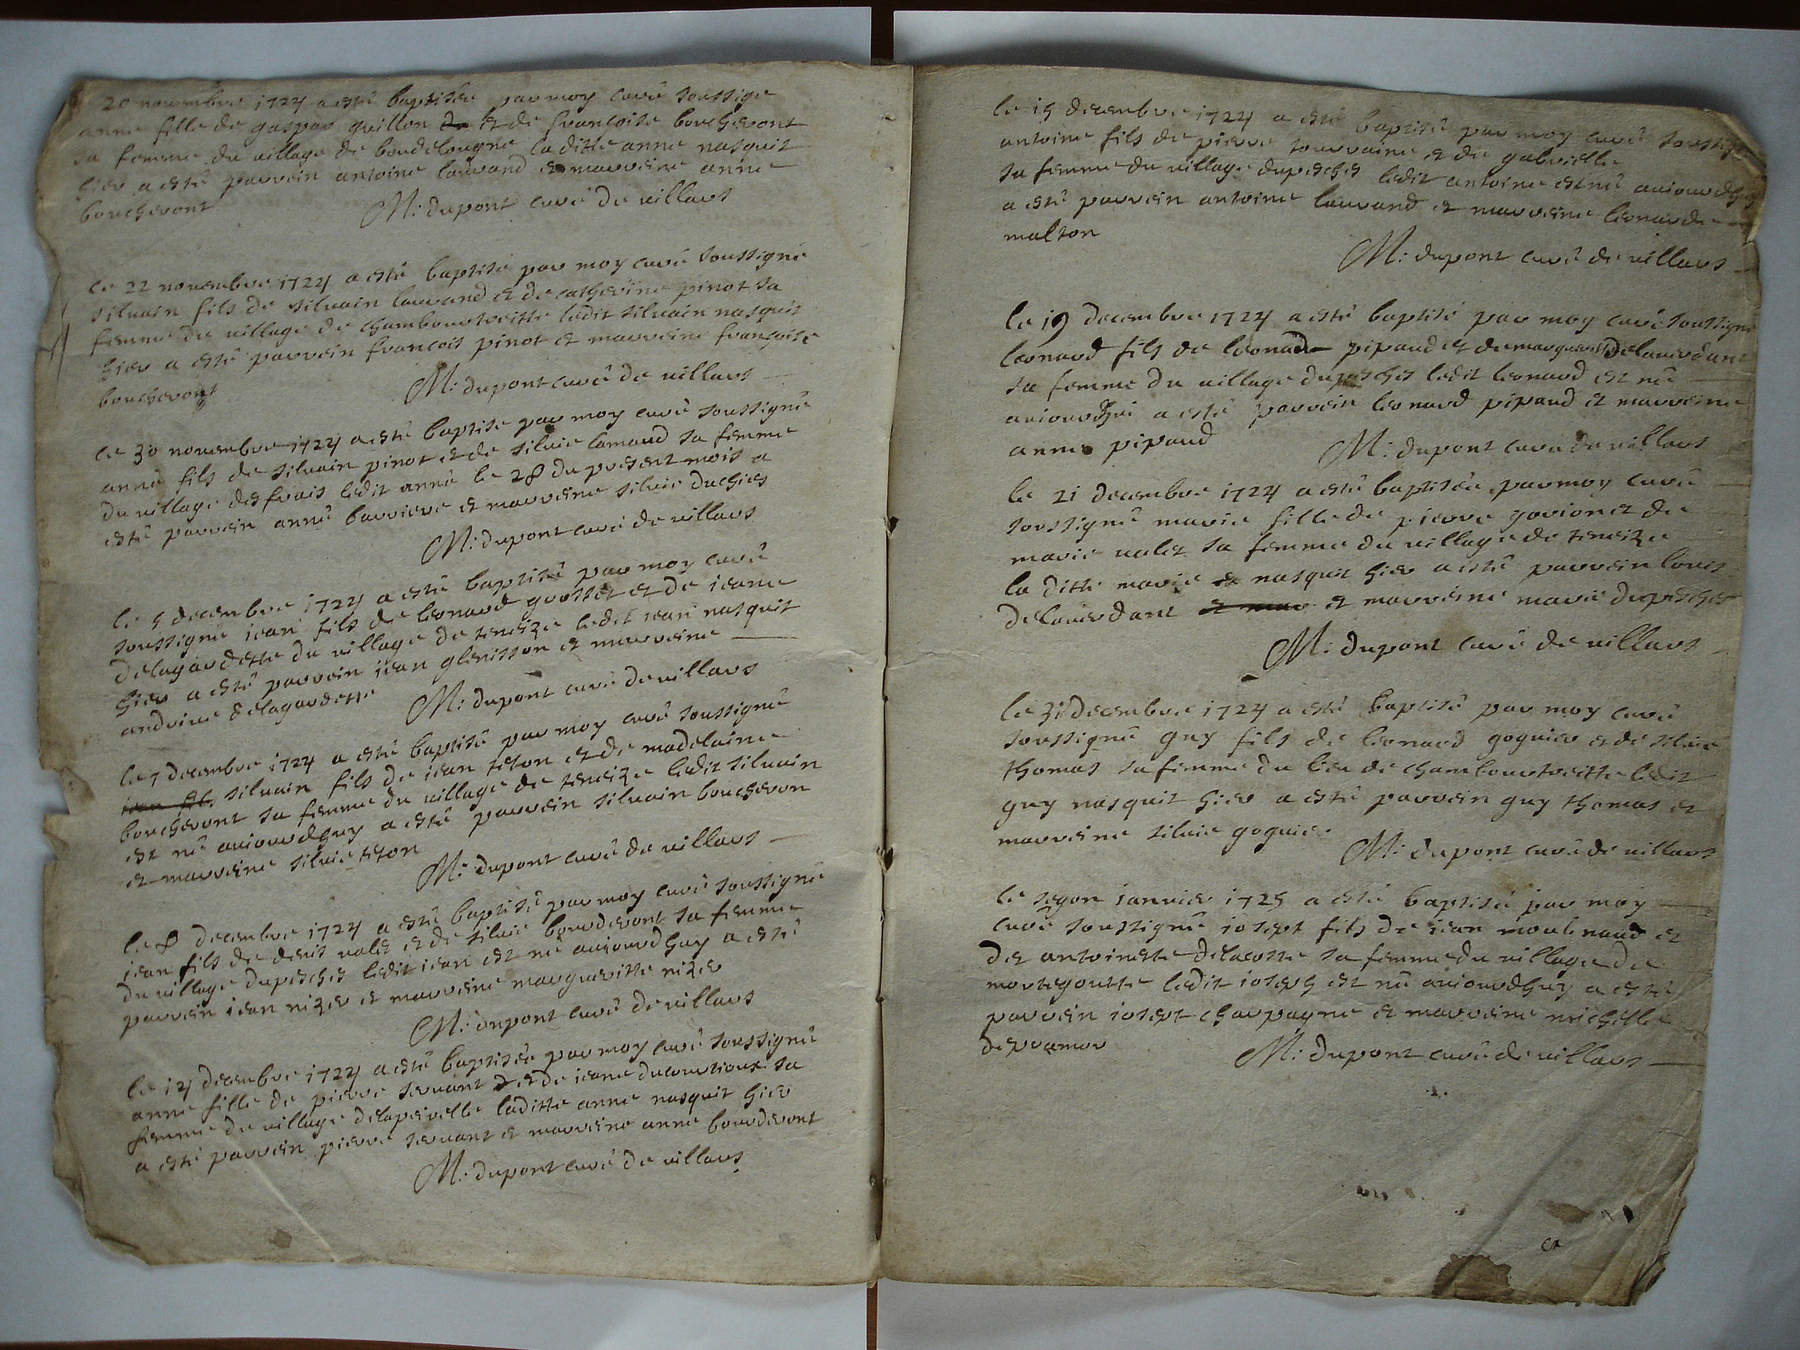 20 novembre 1724 a esté baptisée par moy curé soussigé
anne fille de gaspar guillon et de francoise bouchevont
sa femme du village de boudelougne laditte anne nasquit
hier a esté parrein antoine lauvand et marreine anne
bouchevont
M: dupont curé de villars
le 22 novembre 1724 a esté baptisé par moy curé soussigné
silvain fils de silvain lauvand et de catherine pinot sa
femme du village de chambourtveitte ledit silvain nasquit
hier a esté parrein francois pinot et marreine françoise
bouchevont
M: dupont curé de villars
le 30 novembre 1724 a esté baptisé par moy curé soussigné
anné fils de silvain pinot et de silvie lamaud sa femme
du village desfrais ledit anné le 28 du present mois a
esté parrein anné barriere et marreine silvie duchies
M: dupont curé de villars
le 5 decembre 1724 a esté baptisé par moy curé
soussigné jean fils de leonard grosset et de ieanne
delagardette du village de teneize ledit iean nasquit
hier a esté parrein iean glenisson et marreine
andrine delagardette
M: dupont curé de villars
le 7 decembre 1724 a esté baptisé par moy curé soussigné
iean fils silvain fils de iean teton et de madelaine
bouchevont sa femme du village de teneize ledit silvain
est né auiourdhuy a esté parrein silvain bouchevon
et marreine silvie teton
M: dupont curé de villars
le 8 decembre 1724 a esté baptisé par moy curé soussigné
iean fils de denis valet et de silvie bourderont sa femme
du village dupesches ledit iean est né auiourdhuy a esté
parrein iean nizer et marreine marguaritte nizer
M: dupont curé de villars
le 14 decembre 1724 a esté baptisée par moy curé soussigné
anne fille de pierre servant et de ieanne ducourtioux sa
femme du village delapeivelle laditte anne nasquit hier
a esté parrein pierre servant et marreine anne bourderont
M: dupont curé de villars
le 15 decembre 1724 a esté baptisé par moy curé soussigné
antoine fils de pierre tourraine et de gabrielle
sa femme du village dupesches ledit antoine est né auiourdhuy
a esté parrein antoine lauvand et marreine leonarde
malton
M: dupont curé de villars
le 19 decembre 1724 a esté baptisé par moy curé soussigné
leonard fils de leonard pipaud et de marguaritte delauerdant
sa femme du village dupesches ledit leonard est né
auiourdhui a esté parrein leonard pipaud et marreine
anne pipaud
M: dupont curé de villars
le 21 decembre 1724 a esté baptisée par moy curé
soussigné marie fille de pierre gorionet de
marie valet sa femme du village de teneize
la ditte marie nasquit hier a esté parrein louis
delauerdant et mar et marreine marie dupesches
M: dupont curé de villars
le 31 decembre 1724 a esté baptisé par moy curé
soussigné guy fils de leonard goguier et de silvie
thomas sa femme du lieu de chambourtveitte ledit
guy nasquit hier a esté parrein guy thomas et
marreine silvie goguier
M: dupont curé de villars
le segon ianvier 1725 a esté baptisé par moy
curé soussigné iosept fils de iean moulinaud et
de antoinette delacotte sa femme du village de
mortegoutte ledit ioseph est né auiourdhuy a esté
parrein iosept charpagne et marreine michelle
depramor
M: dupont curé de villars